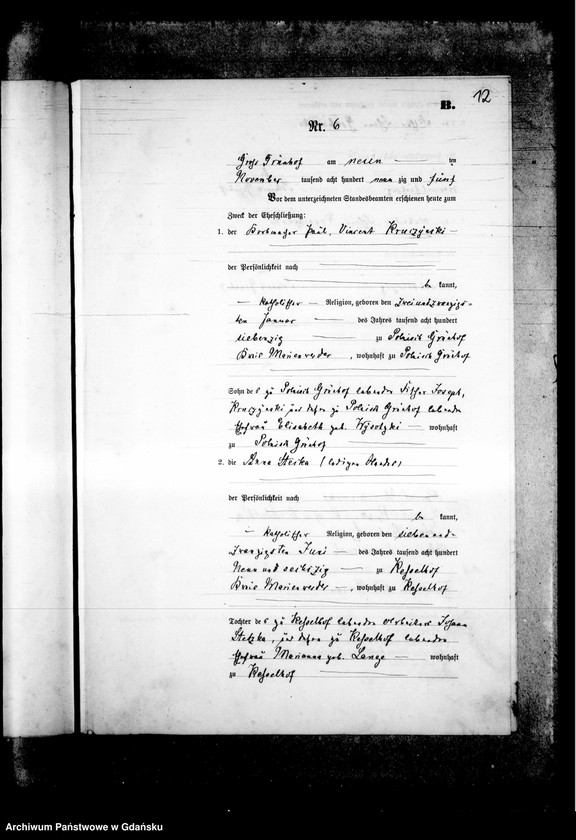 12
B.
Nr. 6
Groß Grünhof am neun ten
November tausend acht hundert neun zig und fünf
Vor dem unterzeichneten Standesbeamten erschienen heute zum
Zweck der Eheschließung:
1. der Paul, Vincent Kruczynski
der Persönlichkeit nach
be kannt,
katholischer Religion, geboren den zweiundzwanzigs-
ten Januar des Jahres tausend acht hundert
siebenzig zu Polnisch Grünhof
Kreis Marienwerder, wohnhaft zu Polnisch Grünhof
Sohn des zu Polnisch Grünhof lebenden Joseph,
Kruczynski und dessen zu Polnisch Grünhof lebenden
Ehefrau Elisabeth geb. Wysotzki wohnhaft
zu Polnisch Grünhof
2. die Anna (ledigen Standes)
der Persönlichkeit nach
be kannt,
katholischer Religion, geboren den siebenund-
zwanzigsten Juni des Jahres tausend acht hundert
neun und sechszig zu Kesselhof
Kreis Marienwerder, wohnhaft zu Kesselhof
Tochter des zu Kesselhof lebenden Arbeiters Johann
und dessen zu Kesselhof lebenden
Ehefrau Marianna geb. Lange wohnhaft
zu Kesselhof
Archiwum Państwowe w Gdańsku